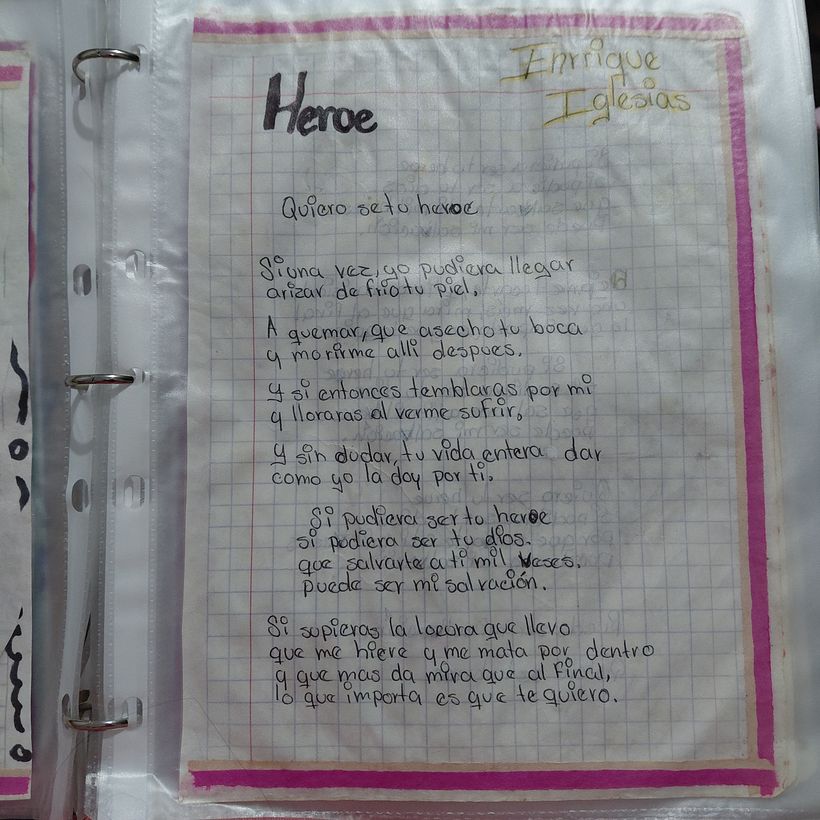 Heroe
Enrrique
Iglesias
Quiero se tu heroe
Si una vez, yo pudiera llegar
arizar de frio tu piel.
A quemar, que asecho tu boca
y morirme alli despues.
y si entonces temblaras por mi
y lloraras al verme sufrir.
y sin dudar, tu vida entera dar
como yo la doy por ti.
Si pudiera ser tu heroe
si pudiera ser tu dios.
que salvarte a ti mil veses.
puede ser mi salvación.
Si supieras la locura que llevo
que me hiere y me mata por dentro
y que mas da mira que al final,
lo que importa es que te quiero.